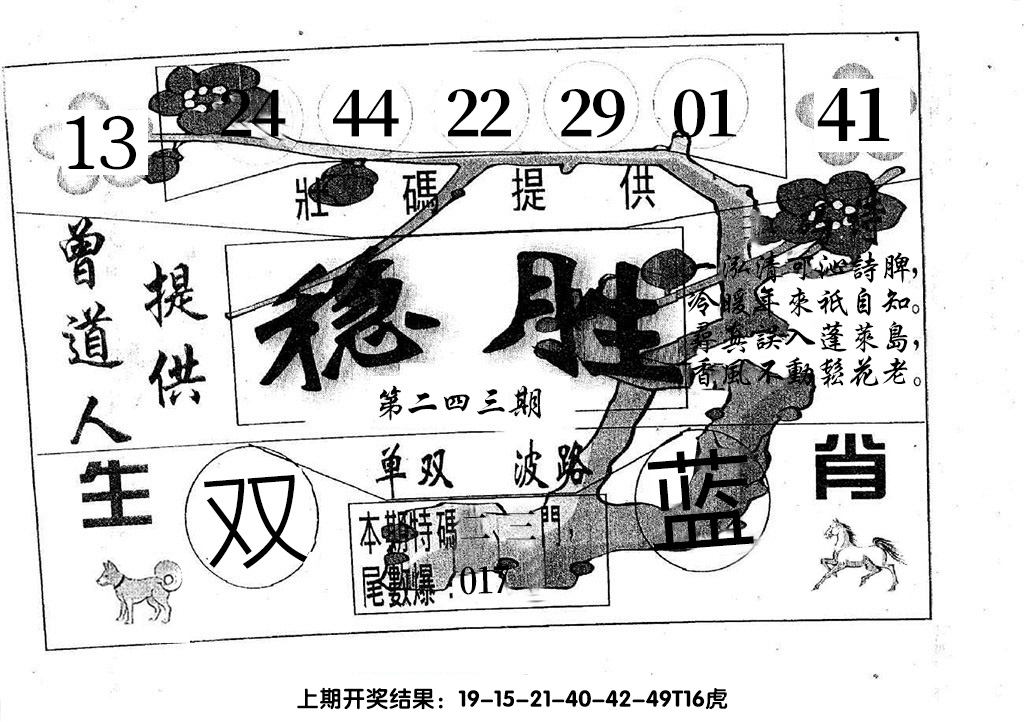 13 24 44 22 29 01 41
壯碼提供
曾道人
提供
特
泓清可沁詩脾，
冷暖年來祇自知。
尋真誤入蓬萊島，
香風不動鬆花老。
稳胜
第二四三期
单双 波路
生肖
双
蓝
本期特碼二、三門，
尾數爆：017
上期开奖结果：19-15-21-40-42-49T16虎